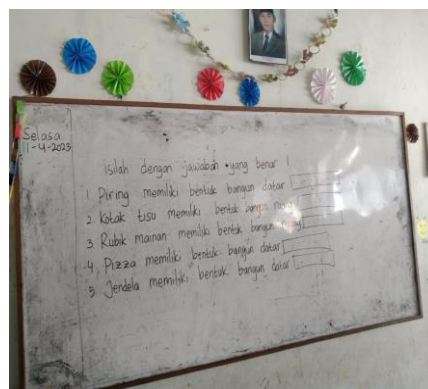 Selasa
11-4-2023
isilah dengan jawaban yang benar !
1. Piring memiliki bentuk bangun datar
2. Kotak tisu memiliki bentuk bangun ruang
3 Rubik mainan memiliki bentuk bangun ruang
4. Pizza memiliki bentuk bangun datar
5. Jendela memiliki bentuk bangun datar